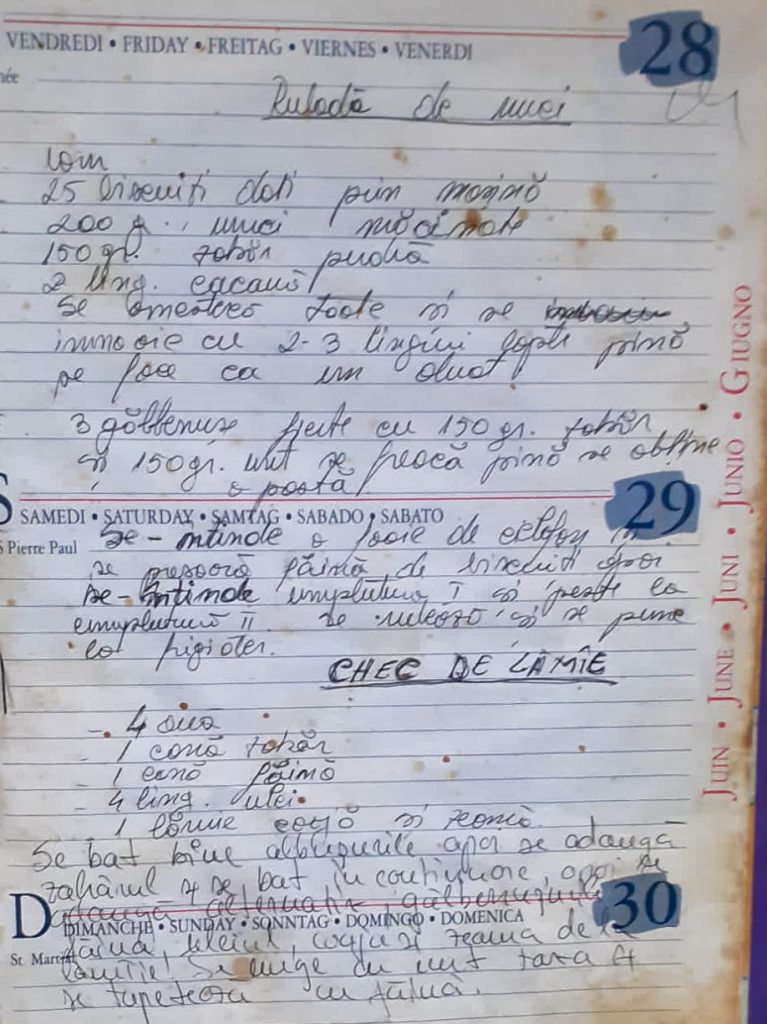 VENDREDI • FRIDAY • FREITAG • VIERNES • VENERDI
28
née
Ruladă de nuci
rom
25 biscuiți dați prin mașină
200 g. nuci măcinate
150 gr. zahăr pudră
2 ling. cacao
Se amestecă toate și se
inmoaie cu 2-3 linguri lapte pînă
se face ca un aluat
3 gălbenuse frecte cu 150 gr. zahăr
și 150 gr. unt se freacă pînă se obține
o pastă
29
SAMEDI • SATURDAY • SAMTAG • SABADO • SABATO
S Pierre Paul
Se-ntinde o foaie de celofan
se presară făină de biscuiți apoi
se-ntinde umplutura I și peste ea
umplutură II se rulează și se pune
la frigider.
CHEC DE LĂMÎE
- 4 ouă
1 cană zahăr
1 cană făină
4 ling. ulei
1 lămîe coajă și zeamă
Se bat bine albușurile apoi se adaugă
zahărul și se bat în continuare, apoi se
adaugă alternativ gălbenușurile
30
DIMANCHE • SUNDAY • SONNTAG • DOMINGO • DOMENICA
făină, uleiul, coaja și zeama de
St. Martial
lămîie. Se unge cu unt tava și
se tapetează cu făină.
JUIN • JUNE • JUNI • JUNIO • GIUGNO